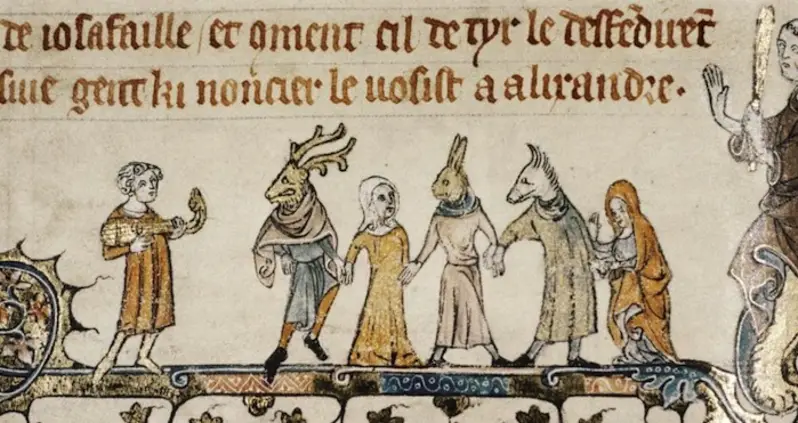 de iosafaille / et ꝯment cil de tyr le deffēdirēt
siue gent ki nōcier le uosist a alixandre.